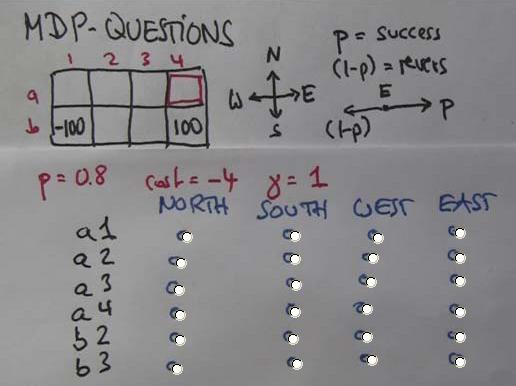 MDP-QUESTIONS
1 2 3 4
a
b -100 100
N
W E
S
p = success
(1-p) = revers
E
(1-p) P
p = 0.8 cost = -4 γ = 1
NORTH SOUTH WEST EAST
a1
a2
a3
a4
b2
b3